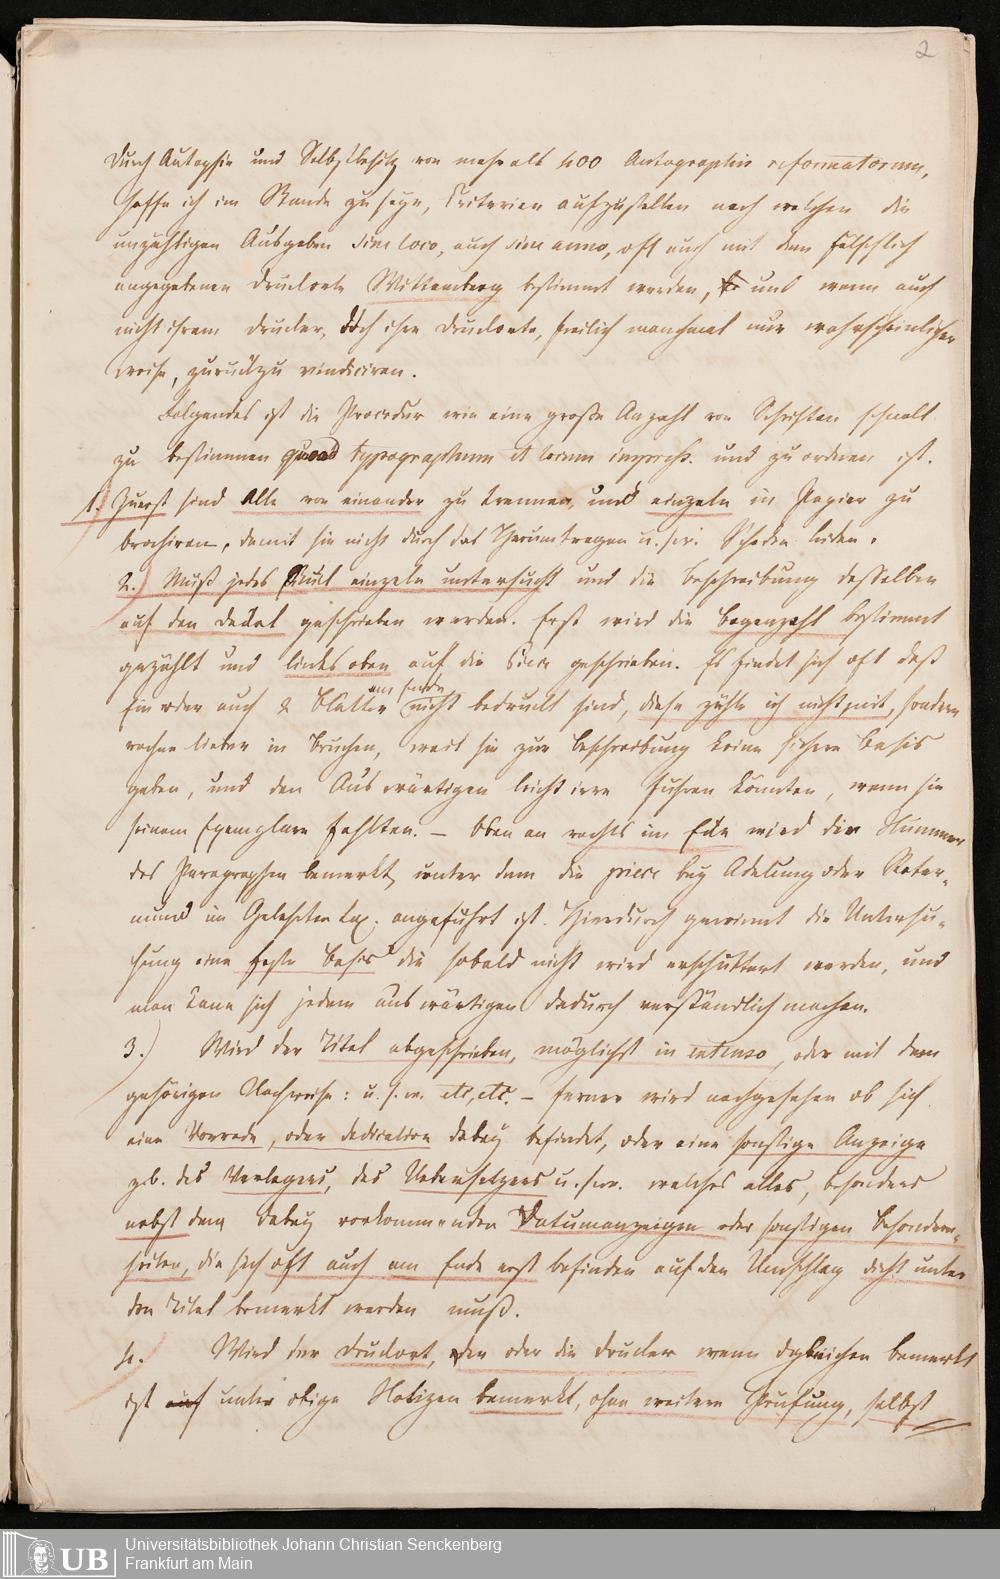 2
Durch Autopsie und Selbstbesitz von mehr als 400 Autographis reformatorum,
hoffe ich im Stande zu seyn, Criterien aufzustellen nach welchen die
unzähligen Ausgaben sine loco, auch sine anno, oft auch mit dem fälschlich
angegebenen Druckorte Wittemberg bestimmt werden, und wenn auch
nicht ihrem Drucker, doch ihrem Druckorte, freilich manchmal nur wahrscheinlicher
weise, zurückzu vindiciren.
Folgendes ist die Procedur wie eine große Anzahl von Schriften schnell
zu bestimmen quoad typographum et locum impress. und zu ordnen ist.
1. Zuerst sind Alle von einander zu trennen, und einzeln in Papier zu
brochiren, damit sie nicht durch das Herumtragen u.s.w. Schaden leiden.
2.) Muß jedes Stück einzeln untersucht und die Beschreibung desselben
auf den Deckel geschrieben werden. Erst wird die Bogenzahl bestimmt
gezählt und links oben auf die Piece geschrieben. Es findet sich oft daß
Ein oder auch 2 Blätter am Ende nicht bedruckt sind, diese zähle ich nicht mit, sondern
rechne lieber in Brüchen, weil sie zur Beschreibung keine sichere Basis
geben, und den Auswärtigen leicht irre führen könnten, wenn sie
seinem Exemplare fehlten. – Oben an rechts im Eck wird die Nummer
des Paragraphen bemerkt, unter dem die piece bey Adelung oder Roter-
mund im Gelehrten Lex. angeführt ist. Hierdurch gewinnt die Untersu-
chung eine feste Basis die sobald nicht wird erschüttert werden, und
man kann sich jedem auswärtigen dadurch verständlich machen.
3.) Wird der Titel abgeschrieben, möglichst in extenso, oder mit dem
gehörigen Nachweise: u.s.w. etc, etc. – ferner wird nachgesehen ob sich
eine Vorrede, oder Dedication dabey befindet, oder eine sonstige Anzeige
z.b. des Verlegers, des Uebersetzers u.s.w. welches alles, besonders
nebst dem dabey vorkommenden Datumanzeigen oder sonstigen Besonder-
heiten, die sich oft auch am Ende erst befinden auf den Umschlag dicht unter
den Titel bemerkt werden muß.
4. Wird der Druckort, oder die Drucker wenn dergleichen bemerkt
ist unter obige Notizen bemerkt, ohne weitere Prüfung, selbst
UB
Universitätsbibliothek Johann Christian Senckenberg
Frankfurt am Main